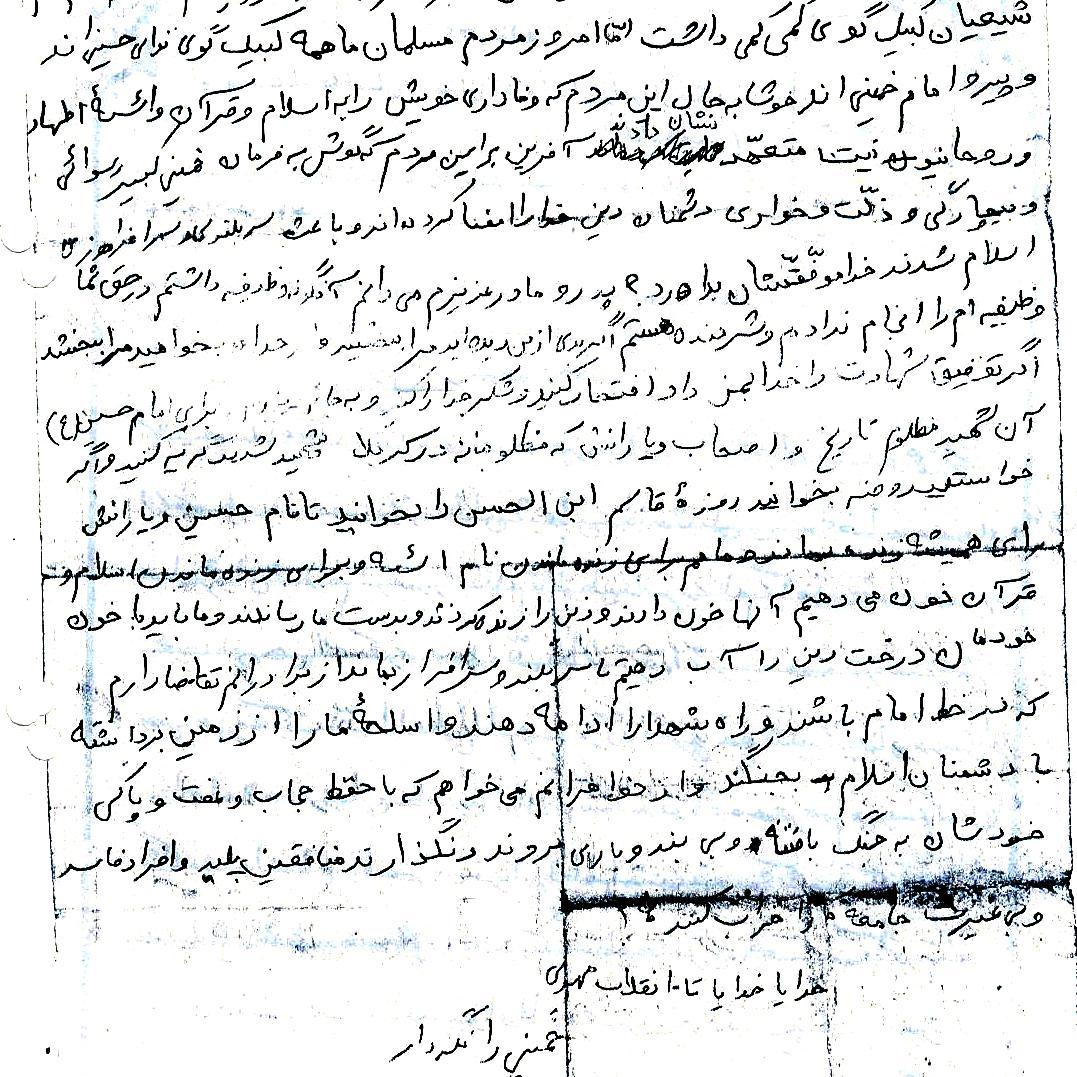 شیعیان لبیک گوی کمی کمی داشت اما امروز مردم مسلمان ما همه لبیک گوی ندای حسینی اند
و پیرو امام خمینی اند خوشا به حال این مردم که وفاداری خویش را به اسلام و قرآن وائمهٔ اطهار
نشان دادند
و روحانیون متعهد آفرین بر این مردم که گوش به فرمان خمینی کبیر رسوائی
و بیچارگی و ذلّت و خواری دشمنان دین خدا را امضا کرده اند و باعث سربلندی و سرافرازی
اسلام شدند خدا موفّقشان بدارد پدر و مادر عزیزم می دانم آنگونه وظیفه داشتم در حق شما
وظیفه ام را انجام نداده و شرمنده هستم اگر بدی از من دیده اید مرا ببخشید و از خدا بخواهید مرا ببخشد
اگر توفیق شهادت را خدا بمن داد افتخار کنید و شکر خدا را کنید و به جای برای امام حسین (ع)
آن شهید مظلوم تاریخ و اصحاب و یارانش که مظلومانه در کربلا شهید شدند گریه کنید و اگر
خواستید روضه بخوانید روزهٔ قاسم ابن الحسن را بخوانید تا نام حسین و یارانش
برای همیشه زنده بماند و ما هم برای زنده ماندن نام ائمه و برای زنده ماندن اسلام و
قرآن خون می دهیم آنها خون دادند و دین را زنده کردند و بدست ما رساندند و ما باید با خون
خودمان درخت دین را آب دهیم تا سربلند و سرافراز بماند از برادرانم تقاضا دارم
که در خط امام باشند و راه شهدا را ادامه دهند و اسلحهٔ ما را از زمین برداشته
با دشمنان اسلام بجنگند و از خواهرانم می خواهم که با حفظ حجاب و عفت و پاکی
خودشان به جنگ با و بی بند و باری بروند و نگذارند منافقین پلید و افراد فاسد
و بی غیرت جامعه ما را خراب کنند
خدایا خدایا تا انقلاب مهدی
خمینی را نگه دار